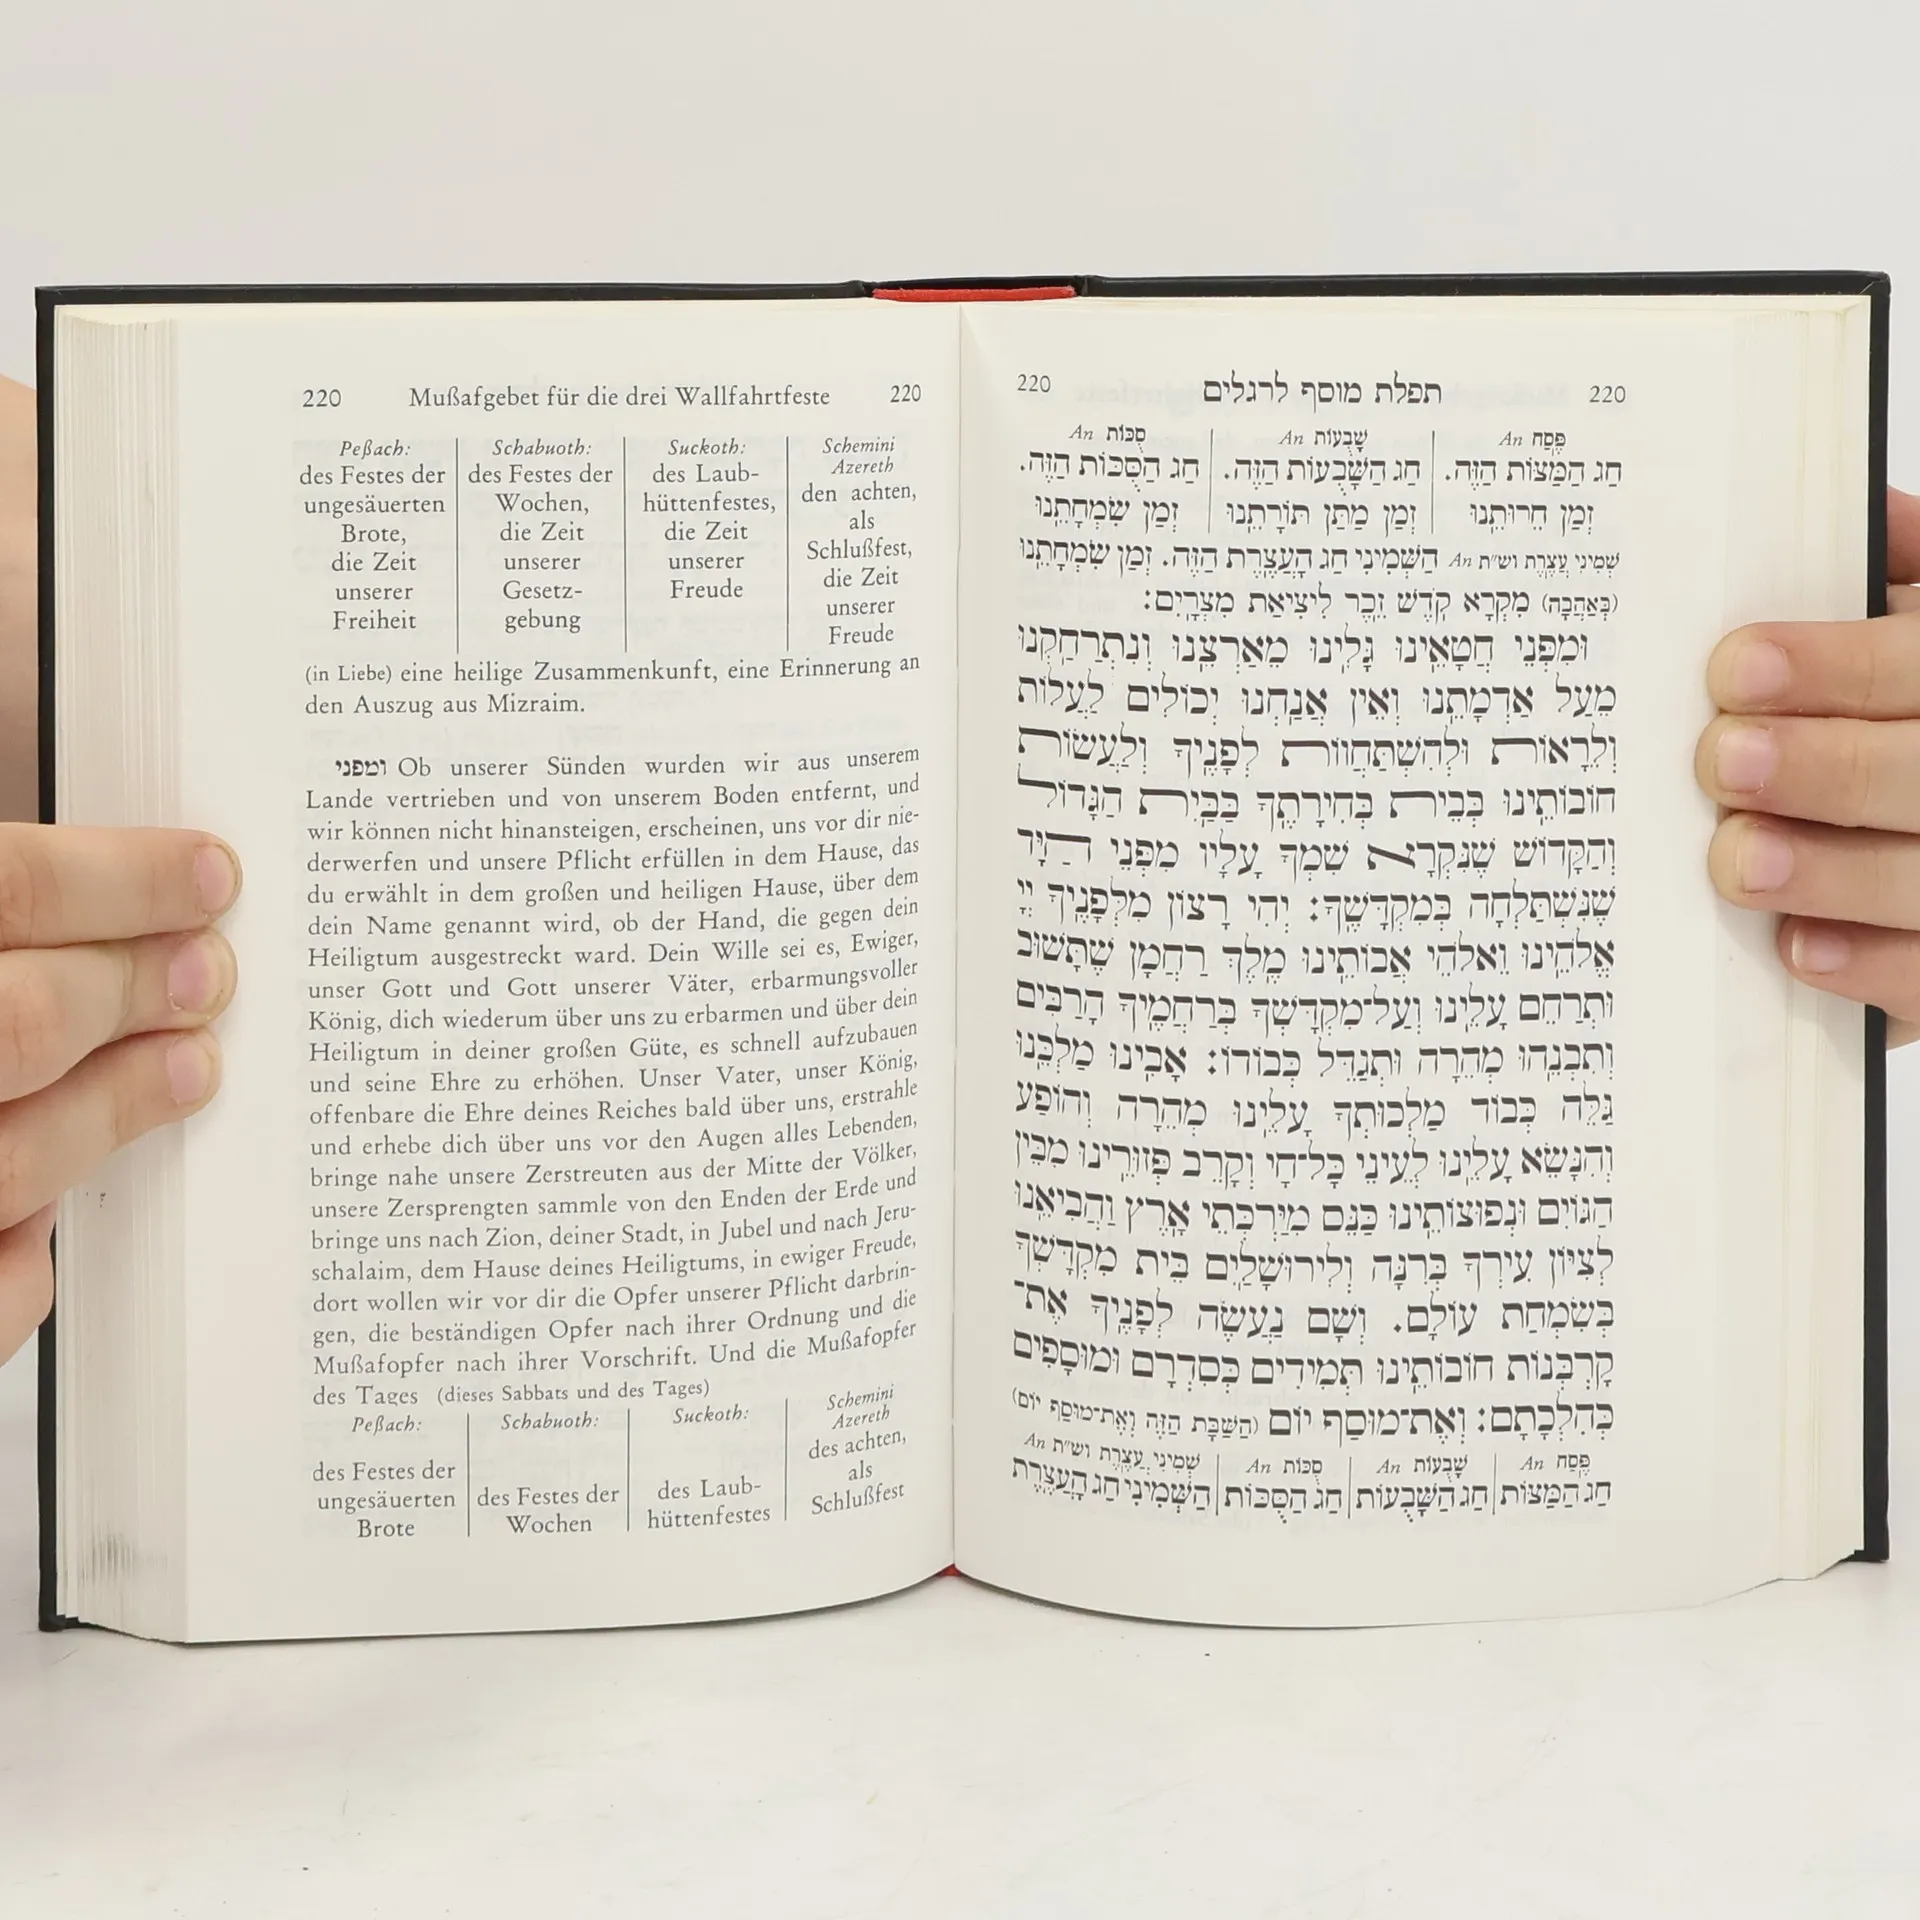 220 Mußafgebet für die drei Wallfahrtfeste 220
Peßach:
des Festes der
ungesäuerten
Brote,
die Zeit
unserer
Freiheit
Schabuoth:
des Festes der
Wochen,
die Zeit
unserer
Gesetz-
gebung
Suckoth:
des Laub-
hüttenfestes,
die Zeit
unserer
Freude
Schemini
Azereth
den achten,
als
Schlußfest,
die Zeit
unserer
Freude
(in Liebe) eine heilige Zusammenkunft, eine Erinnerung an
den Auszug aus Mizraim.
ומפני Ob unserer Sünden wurden wir aus unserem
Lande vertrieben und von unserem Boden entfernt, und
wir können nicht hinansteigen, erscheinen, uns vor dir nie-
derwerfen und unsere Pflicht erfüllen in dem Hause, das
du erwählt in dem großen und heiligen Hause, über dem
dein Name genannt wird, ob der Hand, die gegen dein
Heiligtum ausgestreckt ward. Dein Wille sei es, Ewiger,
unser Gott und Gott unserer Väter, erbarmungsvoller
König, dich wiederum über uns zu erbarmen und über dein
Heiligtum in deiner großen Güte, es schnell aufzubauen
und seine Ehre zu erhöhen. Unser Vater, unser König,
offenbare die Ehre deines Reiches bald über uns, erstrahle
und erhebe dich über uns vor den Augen alles Lebenden,
bringe nahe unsere Zerstreuten aus der Mitte der Völker,
unsere Zersprengten sammle von den Enden der Erde und
bringe uns nach Zion, deiner Stadt, in Jubel und nach Jeru-
schalaim, dem Hause deines Heiligtums, in ewiger Freude,
dort wollen wir vor dir die Opfer unserer Pflicht darbrin-
gen, die beständigen Opfer nach ihrer Ordnung und die
Mußafopfer nach ihrer Vorschrift. Und die Mußafopfer
des Tages (dieses Sabbats und des Tages)
Peßach:
des Festes der
ungesäuerten
Brote
Schabuoth:
des Festes der
Wochen
Suckoth:
des Laub-
hüttenfestes
Schemini
Azereth
des achten,
als
Schlußfest
220 תפלת מוסף לרגלים 220
An פֶּסַח
חַג הַמַּצּוֹת הַזֶּה.
זְמַן חֵרוּתֵֽנוּ
An שָׁבֻעוֹת
חַג הַשָּׁבֻעוֹת הַזֶּה.
זְמַן מַתַּן תּוֹרָתֵֽנוּ
An סֻכּוֹת
חַג הַסֻּכּוֹת הַזֶּה.
זְמַן שִׂמְחָתֵֽנוּ
An שְׁמִינִי עֲצֶרֶת וש״ת הַשְּׁמִינִי חַג הָעֲצֶֽרֶת הַזֶּה. זְמַן שִׂמְחָתֵֽנוּ
(בְּאַהֲבָה) מִקְרָא קֹֽדֶשׁ זֵֽכֶר לִיצִיאַת מִצְרָֽיִם:
וּמִפְּנֵי חֲטָאֵֽינוּ גָּלִֽינוּ מֵאַרְצֵֽנוּ וְנִתְרַחַֽקְנוּ
מֵעַל אַדְמָתֵֽנוּ וְאֵין אֲנַֽחְנוּ יְכוֹלִים לַעֲלוֹת
וְלֵרָאוֹת וּלְהִשְׁתַּחֲווֹת לְפָנֶֽיךָ וְלַעֲשׂוֹת
חוֹבוֹתֵֽינוּ בְּבֵית בְּחִירָתֶֽךָ בַּבַּֽיִת הַגָּדוֹל
וְהַקָּדוֹשׁ שֶׁנִּקְרָא שִׁמְךָ עָלָיו מִפְּנֵי הַיָּד
שֶׁנִּשְׁתַּלְּחָה בְּמִקְדָּשֶֽׁךָ: יְהִי רָצוֹן מִלְּפָנֶֽיךָ יְיָ
אֱלֹהֵֽינוּ וֵאלֹהֵי אֲבוֹתֵֽינוּ מֶֽלֶךְ רַחֲמָן שֶׁתָּשׁוּב
וּתְרַחֵם עָלֵֽינוּ וְעַל־מִקְדָּשְׁךָ בְּרַחֲמֶֽיךָ הָרַבִּים
וְתִבְנֵֽהוּ מְהֵרָה וּתְגַדֵּל כְּבוֹדוֹ: אָבִֽינוּ מַלְכֵּֽנוּ
גַּלֵּה כְּבוֹד מַלְכוּתְךָ עָלֵֽינוּ מְהֵרָה וְהוֹפַע
וְהִנָּשֵׂא עָלֵֽינוּ לְעֵינֵי כָּל־חָי וְקָרֵב פְּזוּרֵֽינוּ מִבֵּין
הַגּוֹיִם וּנְפוּצוֹתֵֽינוּ כַּנֵּס מִיַּרְכְּתֵי אָֽרֶץ וַהֲבִיאֵֽנוּ
לְצִיּוֹן עִירְךָ בְּרִנָּה וְלִירוּשָׁלַֽיִם בֵּית מִקְדָּשְׁךָ
בְּשִׂמְחַת עוֹלָם. וְשָׁם נַעֲשֶׂה לְפָנֶֽיךָ אֶת־
קָרְבְּנוֹת חוֹבוֹתֵֽינוּ תְּמִידִים כְּסִדְרָם וּמוּסָפִים
כְּהִלְכָתָם: וְאֶת־מוּסַף יוֹם (הַשַּׁבָּת הַזֶּה וְאֶת־מוּסַף יוֹם)
An פֶּסַח
חַג הַמַּצּוֹת
An שָׁבֻעוֹת
חַג הַשָּׁבֻעוֹת
An סֻכּוֹת
חַג הַסֻּכּוֹת
An שְׁמִינִי עֲצֶרֶת וש״ת
הַשְּׁמִינִי חַג הָעֲצֶֽרֶת